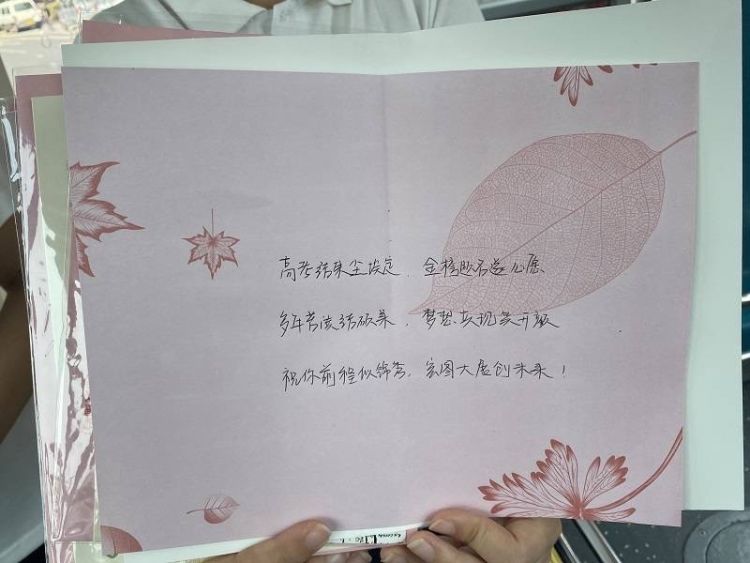 高考结果尘埃定，金榜题名遂心愿、
多年苦读结硕果，梦想实现笑开颜
祝你前程似锦秀，宏图大展创未来！